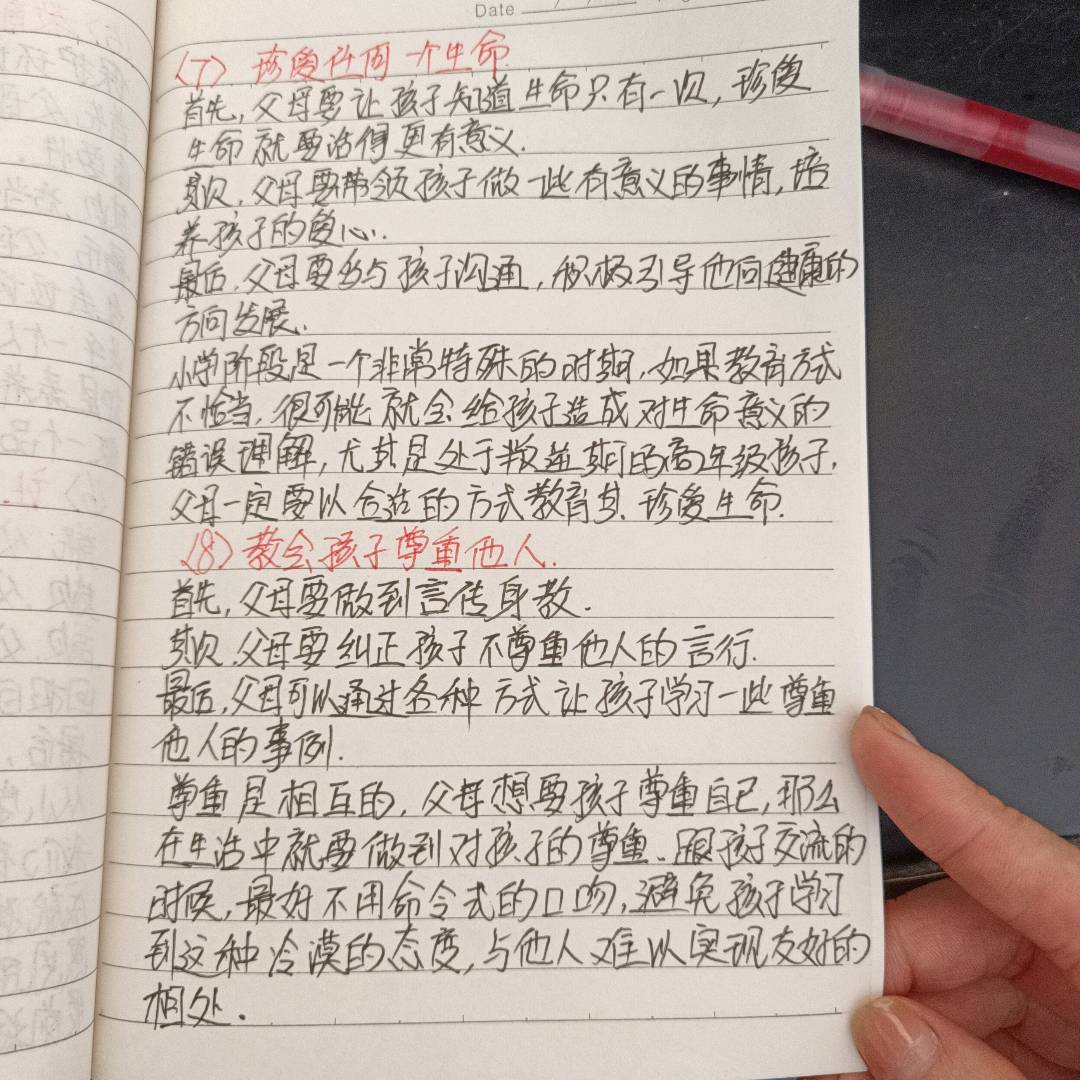 Date
(7) 珍爱任何一个生命.
首先,父母要让孩子知道生命只有一次,珍爱
生命就要活得更有意义.
其次,父母要带领孩子做一些有意义的事情,培
养孩子的爱心.
最后,父母要多与孩子沟通,积极引导他向健康的
方向发展.
小学阶段是一个非常特殊的时期,如果教育方式
不恰当,很可能就会给孩子造成对生命意义的
错误理解,尤其是处于叛逆期的高年级孩子,
父母一定要以合适的方式教育其珍爱生命.
(8) 教会孩子尊重他人.
首先,父母要做到言传身教.
其次,父母要纠正孩子不尊重他人的言行.
最后,父母可以通过各种方式让孩子学习一些尊重
他人的事例.
尊重是相互的,父母想要孩子尊重自己,那么
在生活中就要做到对孩子的尊重、跟孩子交流的
时候,最好不用命令式的口吻,避免孩子学习
到这种冷漠的态度,与他人难以实现友好的
相处.